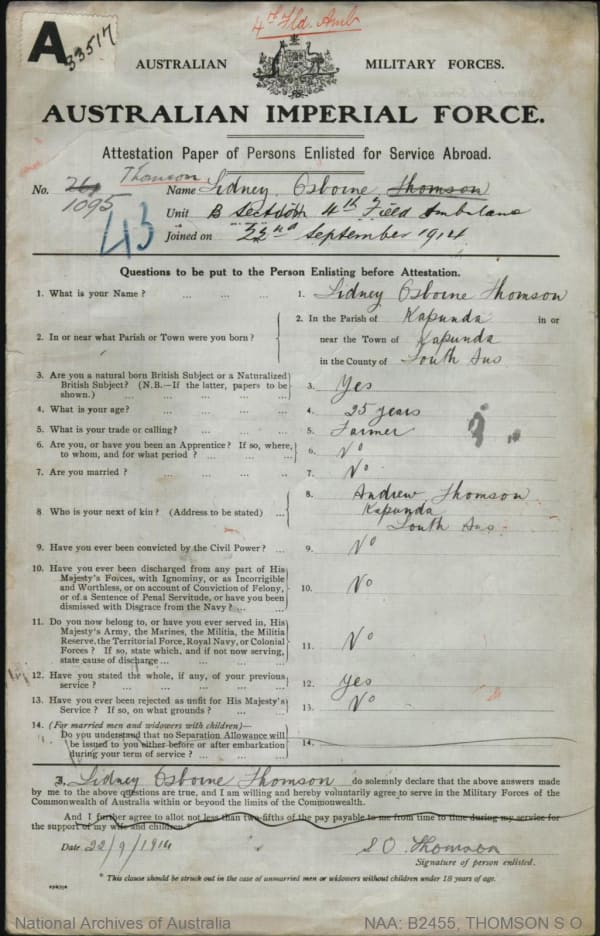 4th Fld. Amb
A
33517
AUSTRALIAN MILITARY FORCES.
AUSTRALIAN IMPERIAL FORCE.
Attestation Paper of Persons Enlisted for Service Abroad.
Thomson
No. 1095 Name Sidney Osborne Thomson
43
Unit B Section 4th Field Ambulance
Joined on 22nd September 1914
Questions to be put to the Person Enlisting before Attestation.
1. What is your Name? ... ... ... 1. Sidney Osborne Thomson
2. In or near what Parish or Town were you born? 2. In the Parish of Kapunda in or
near the Town of Kapunda
in the County of South Aus
3. Are you a natural born British Subject or a Naturalized
British Subject? (N.B.—If the latter, papers to be
shown.) ... ... ... ... ... 3. Yes
4. What is your age? ... ... ... 4. 25 years
5. What is your trade or calling? ... ... 5. Farmer
6. Are you, or have you been an Apprentice? If so, where,
to whom, and for what period? ... ... 6. No
7. Are you married? ... ... ... 7. No
8 Who is your next of kin? (Address to be stated) ... 8. Andrew Thomson
Kapunda
South Aus
9. Have you ever been convicted by the Civil Power? ... 9. No
10. Have you ever been discharged from any part of His
Majesty's Forces, with Ignominy, or as Incorrigible
and Worthless, or on account of Conviction of Felony,
or of a Sentence of Penal Servitude, or have you been
dismissed with Disgrace from the Navy? ... 10. No
11. Do you now belong to, or have you ever served in, His
Majesty's Army, the Marines, the Militia, the Militia
Reserve, the Territorial Force, Royal Navy, or Colonial
Forces? If so, state which, and if not now serving,
state cause of discharge ... ... ... 11. No
12. Have you stated the whole, if any, of your previous
service? ... ... ... ... 12. Yes
13. Have you ever been rejected as unfit for His Majesty's
Service? If so, on what grounds? ... 13. No
14. (For married men and widowers with children)—
Do you understand that no Separation Allowance will
be issued to you either before or after embarkation
during your term of service? ... ... 14.
I, Sidney Osborne Thomson do solemnly declare that the above answers made
by me to the above questions are true, and I am willing and hereby voluntarily agree to serve in the Military Forces of the
Commonwealth of Australia within or beyond the limits of the Commonwealth.
And I further agree to allot not less than two-fifths of the pay payable to me from time to time during my service for
the support of my wife and children
Date 22/9/1914 S O Thomson
Signature of person enlisted.
* This clause should be struck out in the case of unmarried men or widowers without children under 18 years of age.
National Archives of Australia NAA: B2455, THOMSON S O